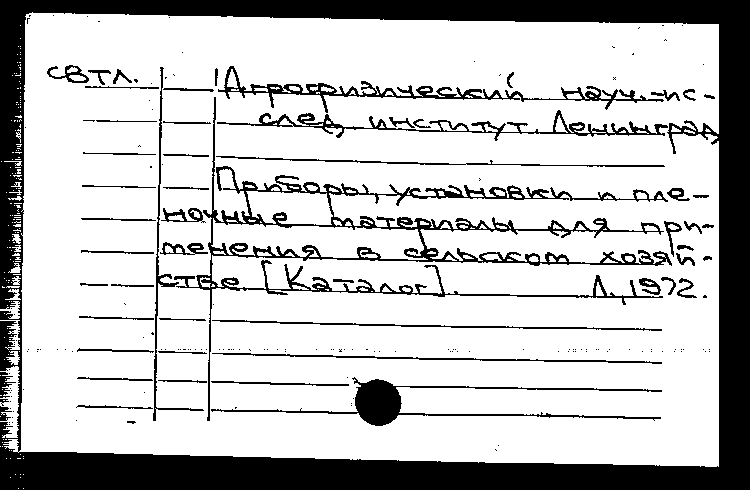 СВТЛ.
Агрофизический науч.-ис-
след. институт. Ленинград
Приборы, установки и пле-
ночные материалы для при-
менения в сельском хозяй-
стве [Каталог]. Л., 1972.